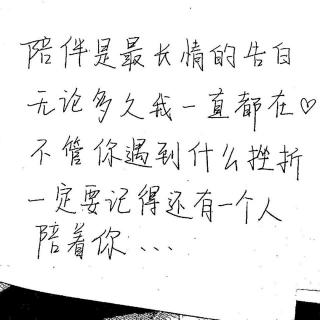 陪伴是最长情的告白
无论多久我一直都在♡
不管你遇到什么挫折
一定要记得还有一个人
陪着你...